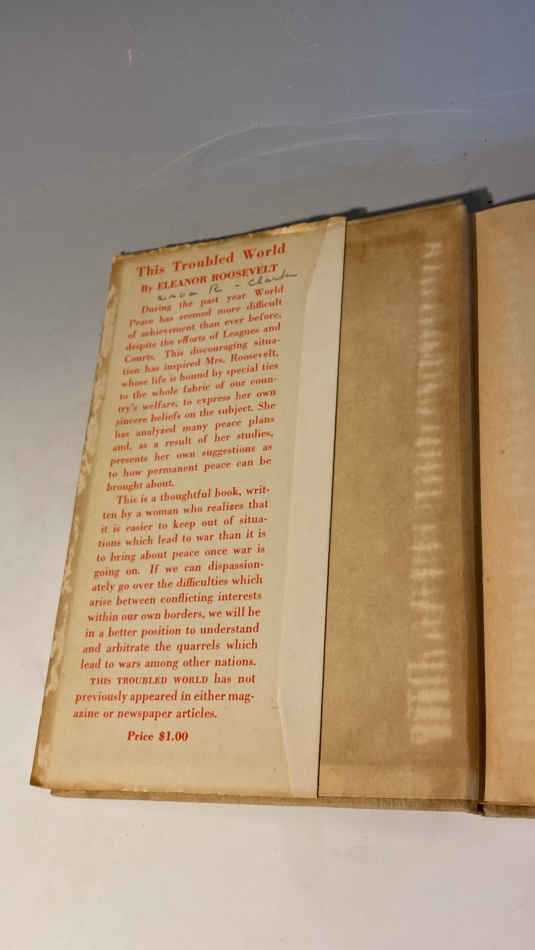 This Troubled World
By ELEANOR ROOSEVELT
R - Clark
During the past year World
Peace has seemed more difficult
of achievement than ever before,
despite the efforts of Leagues and
Courts. This discouraging situa-
tion has inspired Mrs. Roosevelt,
whose life is bound by special ties
to the whole fabric of our coun-
try's welfare, to express her own
sincere beliefs on the subject. She
has analyzed many peace plans
and, as a result of her studies,
presents her own suggestions as
to how permanent peace can be
brought about.
This is a thoughtful book, writ-
ten by a woman who realizes that
it is easier to keep out of situa-
tions which lead to war than it is
to bring about peace once war is
going on. If we can dispassion-
ately go over the difficulties which
arise between conflicting interests
within our own borders, we will be
in a better position to understand
and arbitrate the quarrels which
lead to wars among other nations.
THIS TROUBLED WORLD has not
previously appeared in either mag-
azine or newspaper articles.
Price $1.00